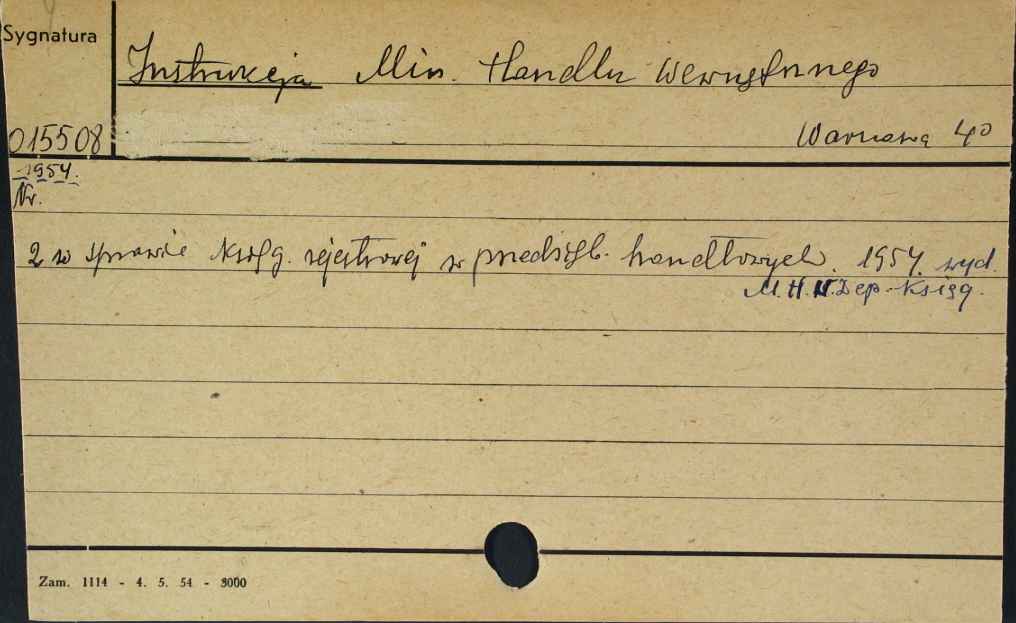 Sygnatura
Instrukcja Min. Handlu Wewnętrznego
015508
Warszawa 4°
1954.
Nr.
2 w sprawie księg. rejestrowej w przedsięb. handlowych. 1954. wyd.
M.H.W. Dep. Księg.
Zam. 1114 - 4. 5. 54 - 3000